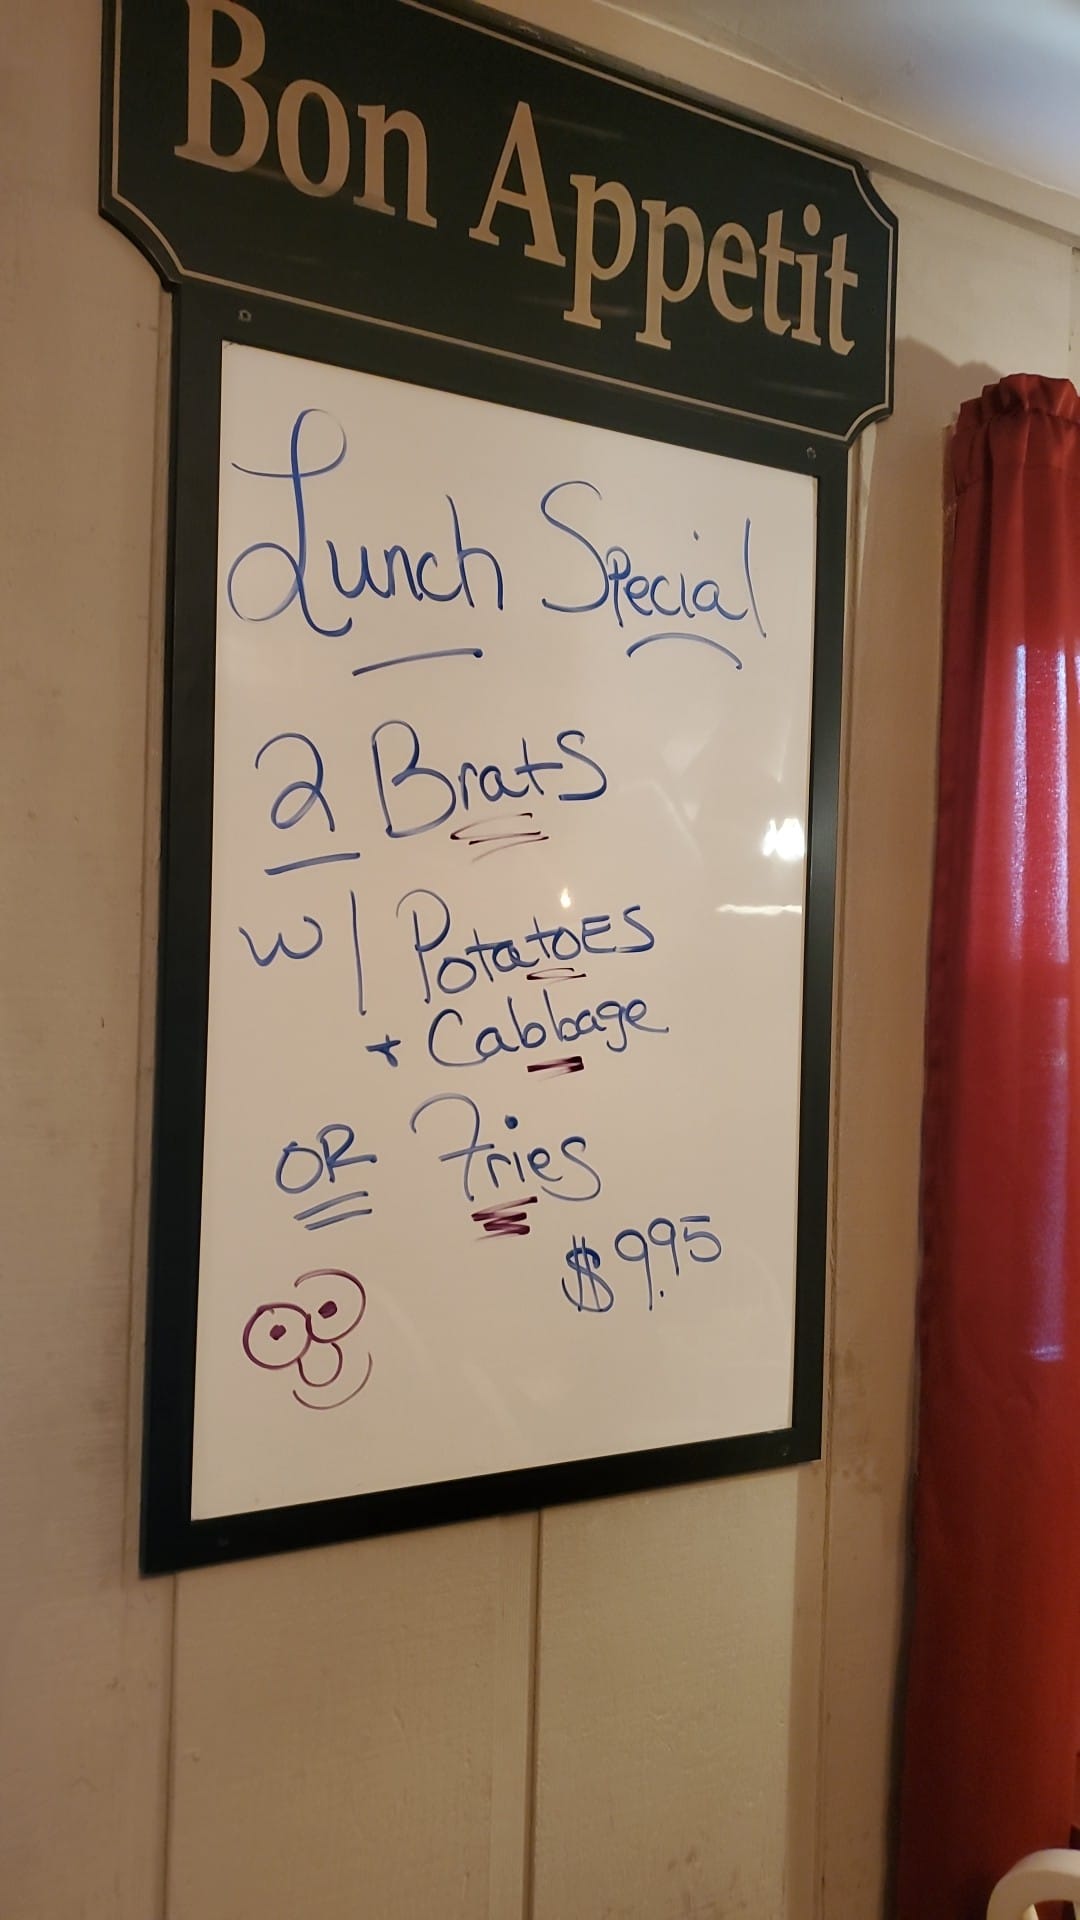 Bon Appetit
Lunch Special
2 Brats
w/ Potatoes
+ Cabbage
OR Fries
$9.95